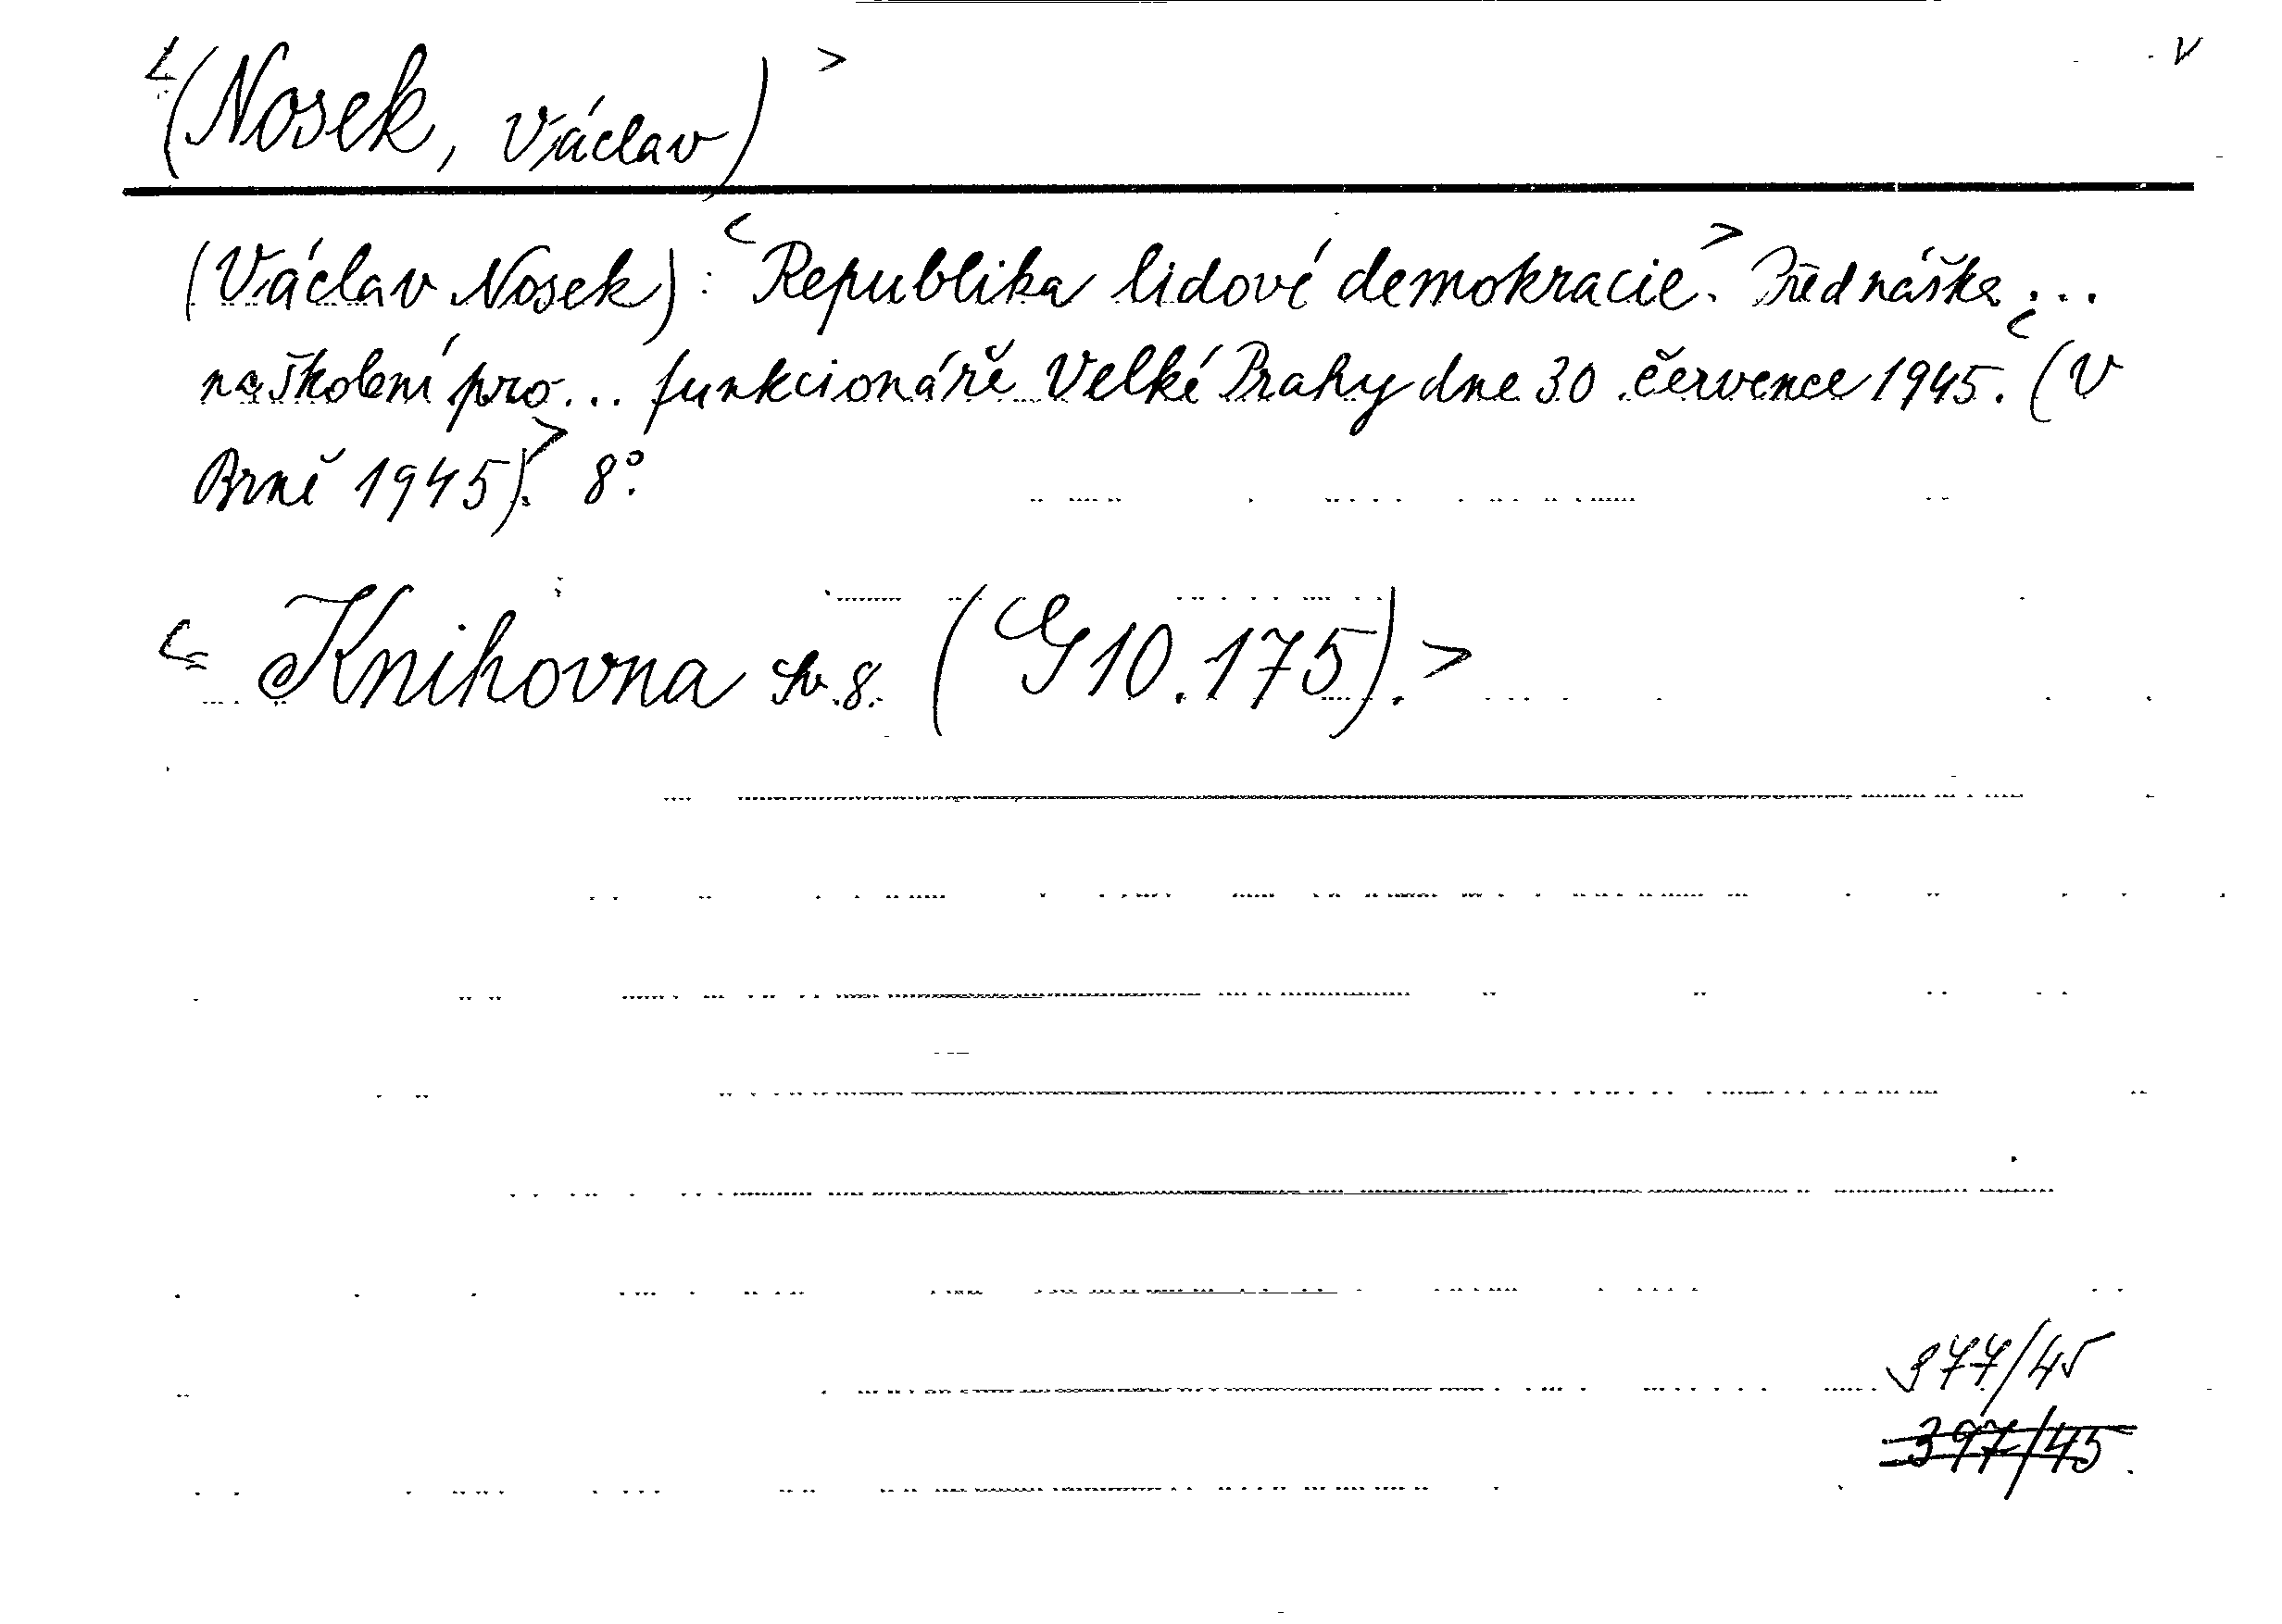 <(Nosek, Václav)> V
(Václav Nosek): <Republika lidové demokracie.> Přednáška ...
na školení pro... funkcionáře Velké Prahy dne 30. července 1945. <(V
Brně 1945).> 8°.
<= Knihovna sv. 8. (G 10.175).>
977/45
397/45